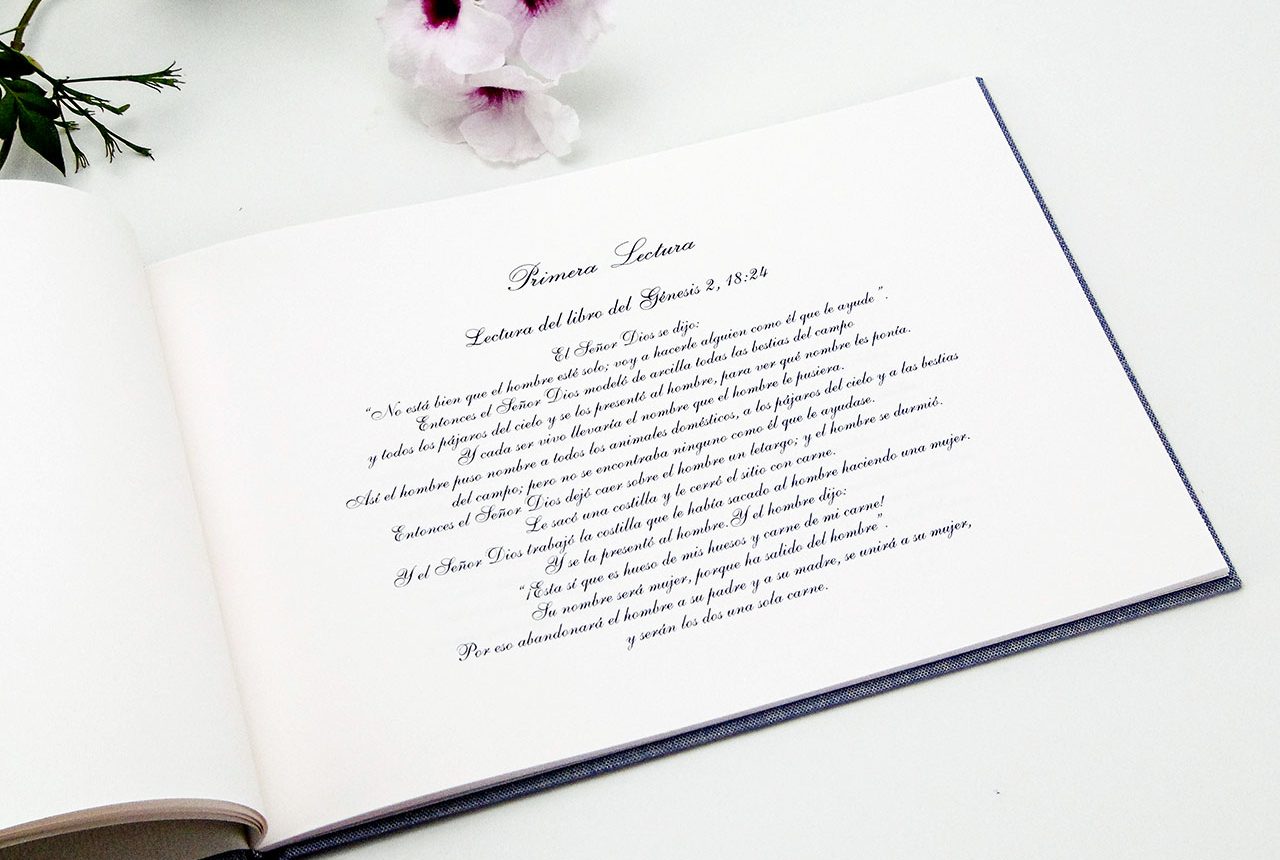 Primera Lectura
Lectura del libro del Génesis 2, 18:24
El Señor Dios se dijo:
“No está bien que el hombre esté solo; voy a hacerle alguien como él que le ayude”.
Entonces el Señor Dios modeló de arcilla todas las bestias del campo
y todos los pájaros del cielo y se los presentó al hombre, para ver qué nombre les ponía.
Y cada ser vivo llevaría el nombre que el hombre le pusiera.
Así el hombre puso nombre a todos los animales domésticos, a los pájaros del cielo y a las bestias
del campo; pero no se encontraba ninguno como él que le ayudase.
Entonces el Señor Dios dejó caer sobre el hombre un letargo; y el hombre se durmió.
Le sacó una costilla y le cerró el sitio con carne.
Y el Señor Dios trabajó la costilla que le había sacado al hombre haciendo una mujer.
Y se la presentó al hombre. Y el hombre dijo:
“¡Esta sí que es hueso de mis huesos y carne de mi carne!
Su nombre será mujer, porque ha salido del hombre”.
Por eso abandonará el hombre a su padre y a su madre, se unirá a su mujer,
y serán los dos una sola carne.